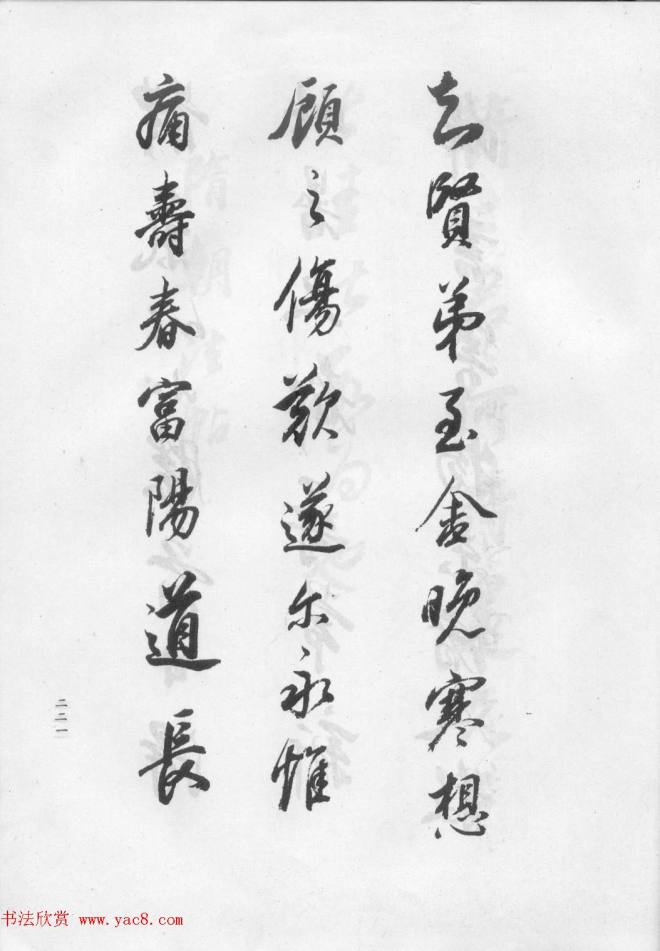 去賢弟至金晚寒想
顧之傷歎遂尔永惟
痛壽春富陽道長
二二一
书法欣赏 www.yac8.com